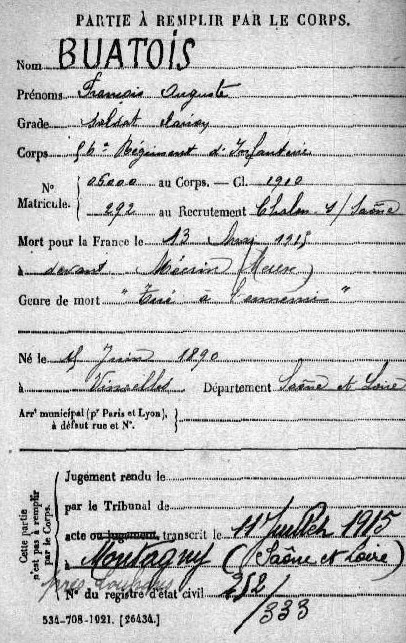 PARTIE À REMPLIR PAR LE CORPS.
Nom BUATOIS
Prénoms François Auguste
Grade Soldat
Corps 56e Régiment d'Infanterie
N° Matricule. 05000 au Corps. — Cl. 1910
292 au Recrutement Chalon s/ Saône
Mort pour la France le 13 Mai 1915
à devant Mécrin (Meuse)
Genre de mort "Tué à l'ennemi"
Né le Juin 1890
à Vinzelles Département Saône et Loire
Arrt municipal (pr Paris et Lyon), à défaut rue et N°.
Cette partie n'est pas à remplir par le Corps.
Jugement rendu le
par le Tribunal de
acte ou jugement transcrit le 11 Juillet 1915
à Montagny (Saône et Loire)
près Louhans
N° du registre d'état civil 212/
/333
534-708-1921. [26434.]